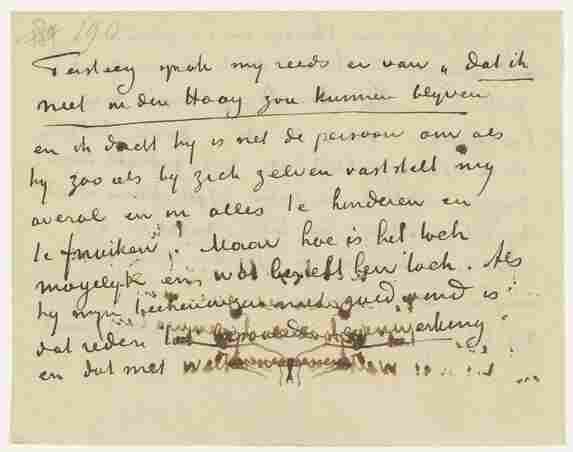 190
Tersteeg sprak mij reeds er van „dat ik
niet in den Haag zou kunnen blijven
en ik dacht hij is net de persoon om als
hij zoo iets bij zich zelven vaststelt mij
overal en in alles te hinderen en
te fnuiken". Maar hoe is het toch
mogelijk en wat bezielt hem toch. Als
hij mijn teekeningen niet goed vind is
dat reden tot
en dat met